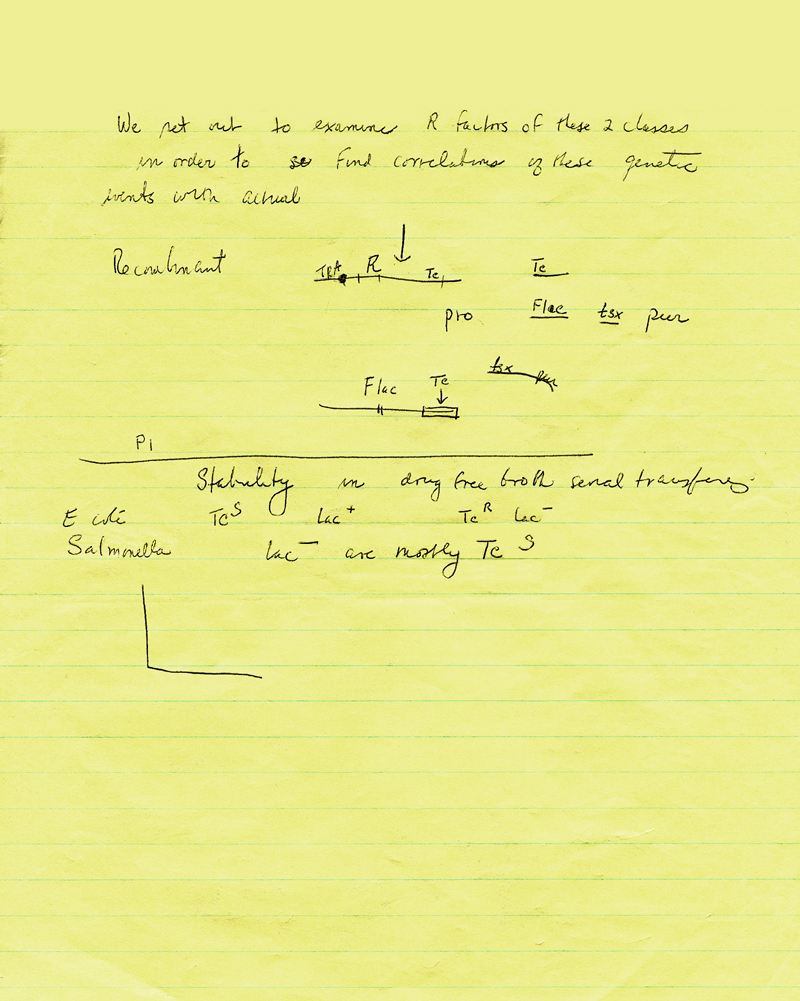 We set out to examine R factors of these 2 classes
in order to find correlations of these genetic
events with actual
Recombinant TRA R Tc Tc
pro Flac tsx pur
tsx pur
Flac Tc
P1
Stability in drug free broth serial transfers.
E coli Tc S Lac + Tc R Lac −
Salmonella Lac − are mostly Tc S